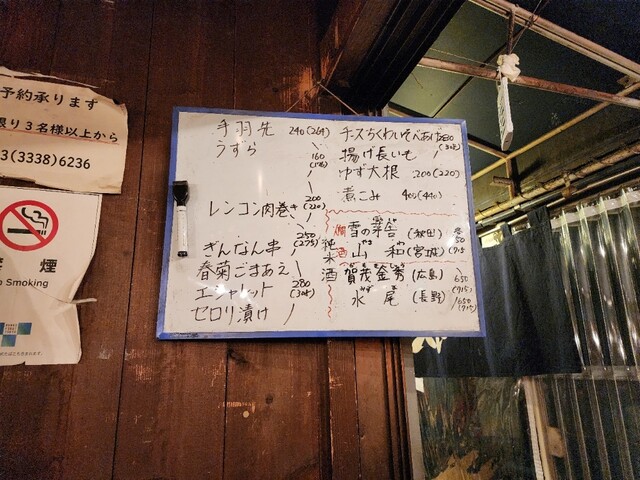 予約承ります
限り3名様以上から
3(3338)6236
禁煙
No Smoking
手羽先 240(264)
うずら 〃
160
(176)
レンコン肉巻き 200
(220)
ぎんなん串 250
(275)
春菊ごまあえ 〃
エシャレット 280
(308)
セロリ漬け 〃
チーズちくわいそべあげ 280
(308)
揚げ長いも 〃
ゆず大根 200(220)
煮こみ 400(440)
純米酒
雪の茅舎 (秋田)
山和 (宮城)
賀茂金秀 (広島) 650
(715)
水尾 (長野) 650
(715)